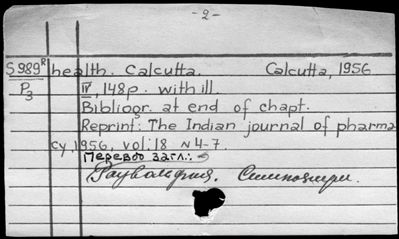 -2-
S989R health. Calcutta. Calcutta, 1956
P3 IV, 148p. with ill.
Bibliogr. at end of chapt.
Reprint: The Indian journal of pharma
cy, 1956, vol: 18 N 4-7.
Перевод загл.:
Раувольфия. Симпозиум.